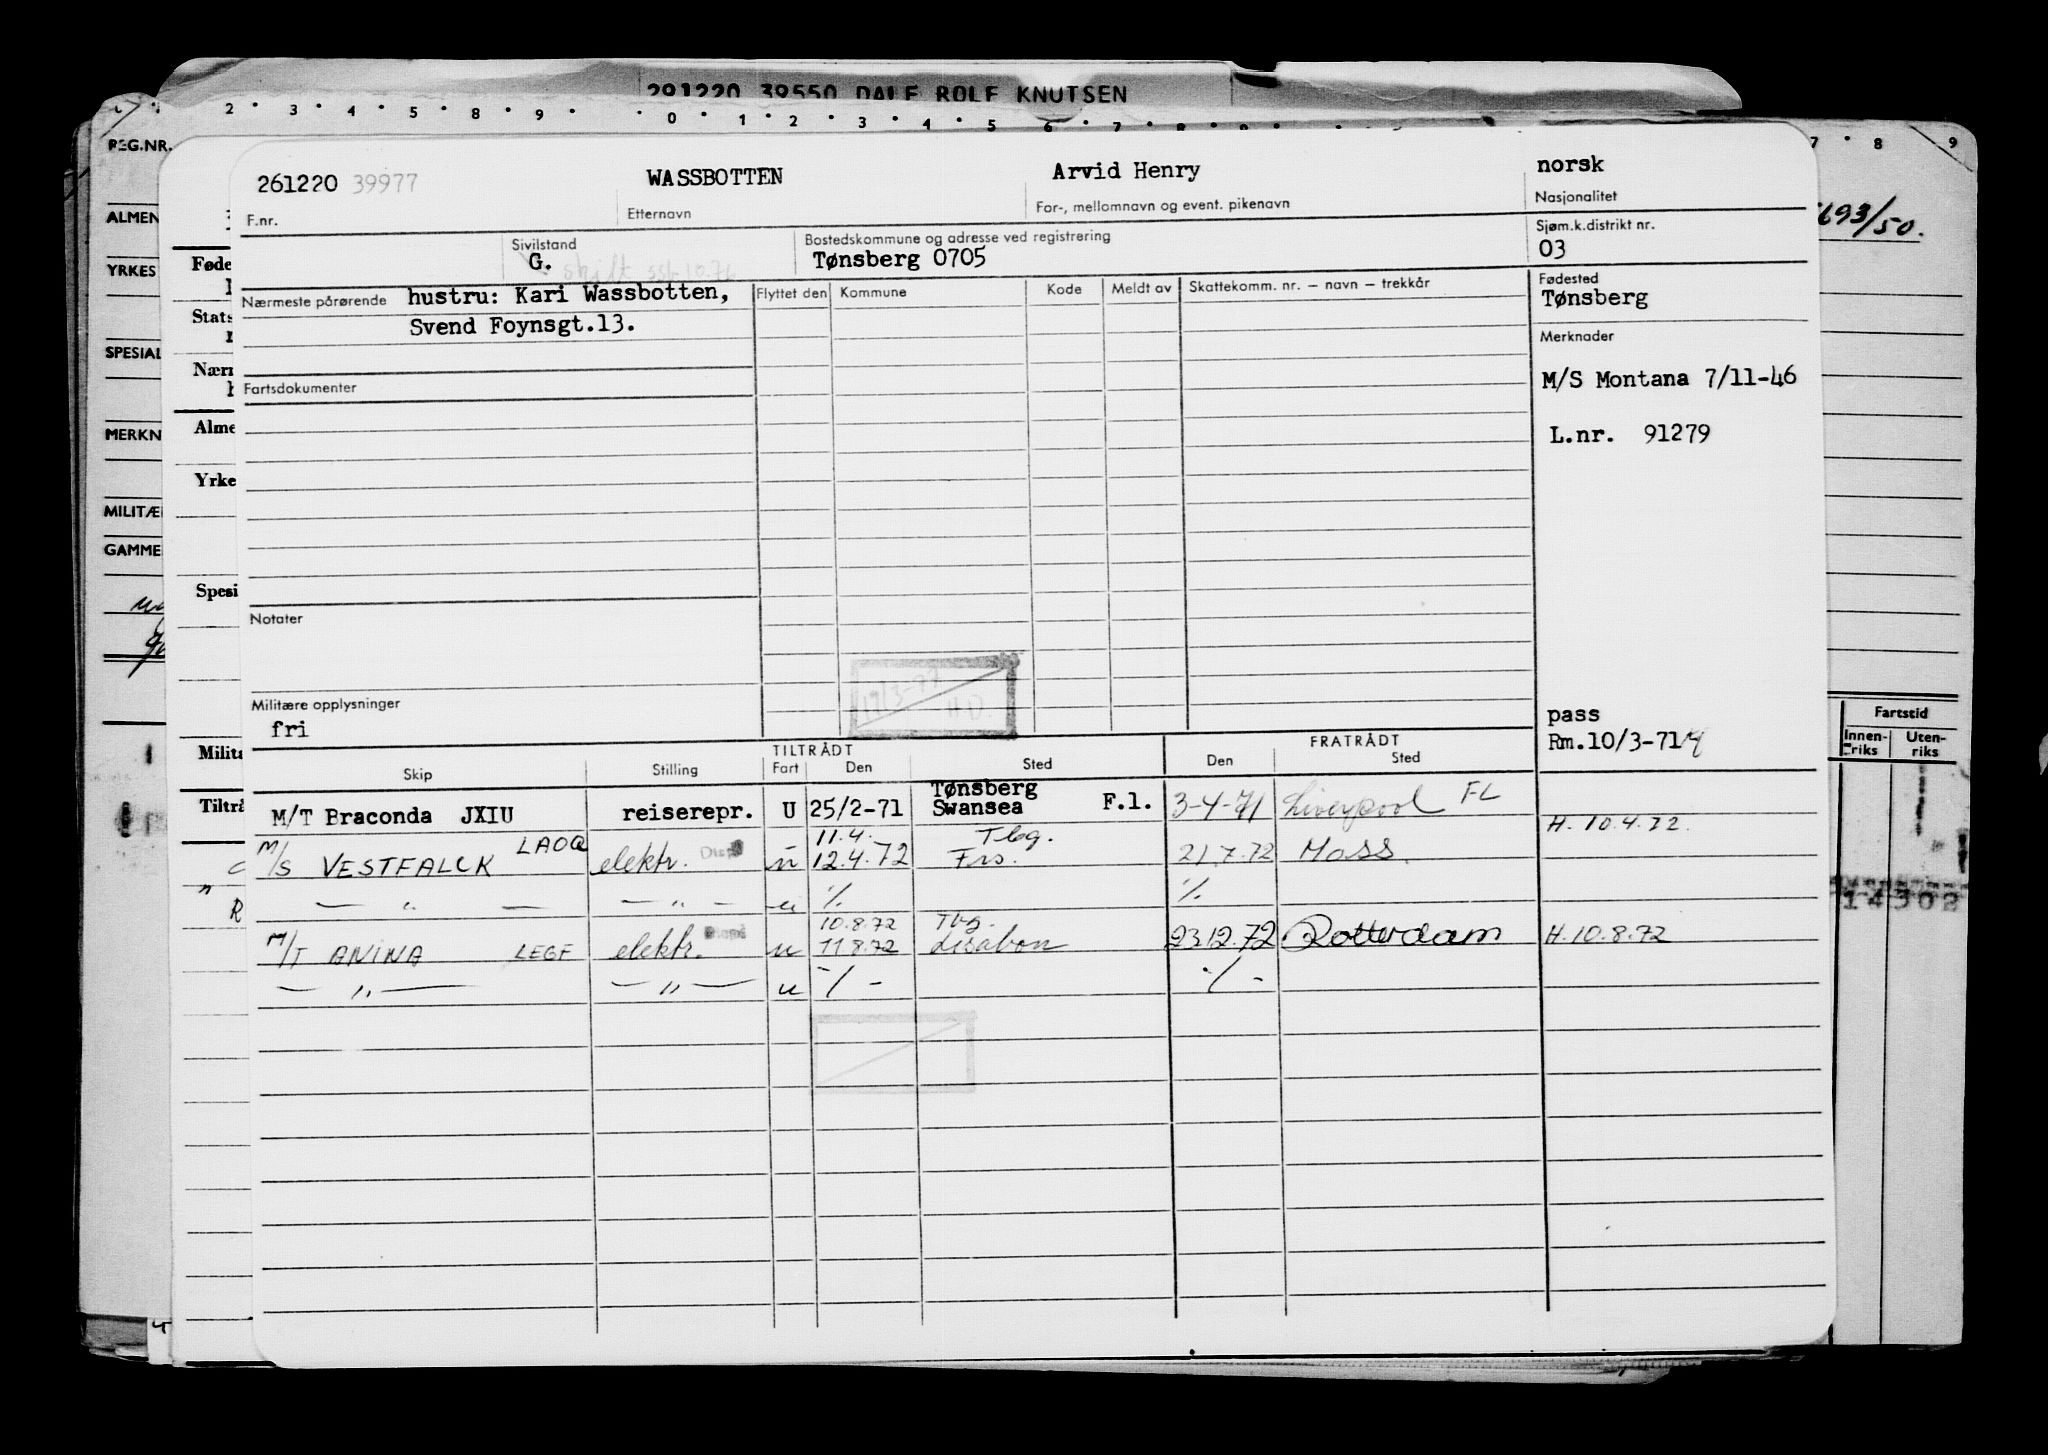 291220 39550 DALE ROLF KNUTSEN
2 3 4 5 8 9 0 1 2 3 4 5 6 7 8 9
7 8 9
REG.NR.
ALMEN
YRKES
SPESIAL
MERKN
MILITÆ
GAMME
Føde
Stats
Nærm
Alme
Yrke
Spesi
Milita
Tiltrå
693/50.
Fartstid
Innen-riks Uten-riks
14302
261220 39977 WASSBOTTEN Arvid Henry norsk
F.nr. Etternavn For-, mellomnavn og event. pikenavn Nasjonalitet
Sivilstand Bostedskommune og adresse ved registrering Sjøm.k.distrikt nr.
G. Tønsberg 0705 03
Nærmeste pårørende hustru: Kari Wassbotten, Flyttet den Kommune Kode Meldt av Skattekomm. nr. – navn – trekkår Fødested
Svend Foynsgt.13. Tønsberg
Merknader
Fartsdokumenter M/S Montana 7/11-46
L.nr. 91279
Notater
17/3-77
H D.
Militære opplysninger
fri
pass
Rm.10/3-71
TILTRÅDT FRATRÅDT
Skip Stilling Fart Den Sted Den Sted
Tønsberg
M/T Braconda JXIU reiserepr. U 25/2-71 Swansea F.l. 3-4-71 Liverpool FL
11.4. Tbg. H. 10.4.72.
M/S VESTFALCK LAOQ elektr. u 12.4.72 Frs. 21.7.72 Moss.
— " — — " — u ./. ./.
10.8.72 Tbg.
M/T ANINA LEGF elektr. u 11.8.72 Lisabon 23.12.72 Rotterdam H.10.8.72
— " — — " — u -/- ./-